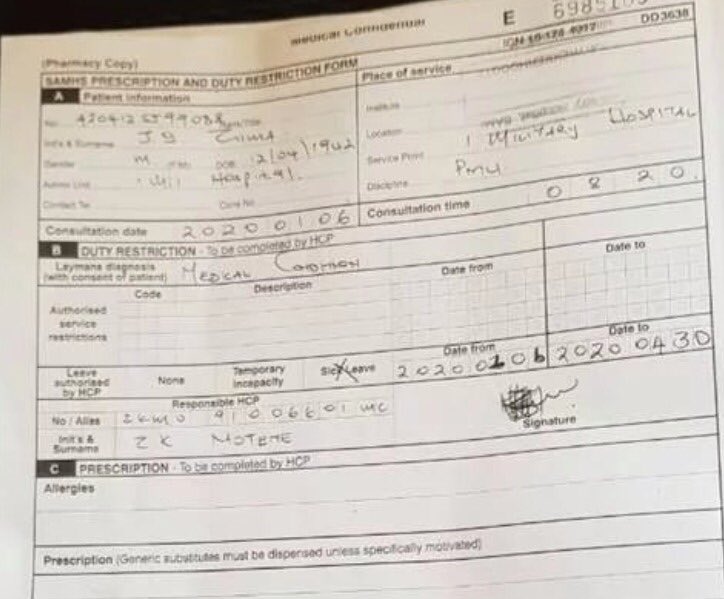 Medical Confidential
E
DD3638
(Pharmacy Copy)
SAMHS PRESCRIPTION AND DUTY RESTRICTION FORM
A Patient information
Place of service
No
Init's & Surname J G
Gender M DOB 12/04/1942
Location 1 Military Hospital
Hospital
Service Point
Discipline
Contact Tel
Consultation date 2020 01 06
Consultation time 08 20
B DUTY RESTRICTION - To be completed by HCP
Laymans diagnosis
(with consent of patient) MEDICAL CONDITION
Code Description Date from Date to
Authorised
service
restrictions
Leave
authorised
by HCP
None
Temporary
incapacity
Sick Leave
Date from 2020 0 0 6
Date to 2020 04 30
Responsible HCP
No / Alias
Init's &
Surname Z K MOTENE
Signature
C PRESCRIPTION - To be completed by HCP
Allergies
Prescription (Generic substitutes must be dispensed unless specifically motivated)